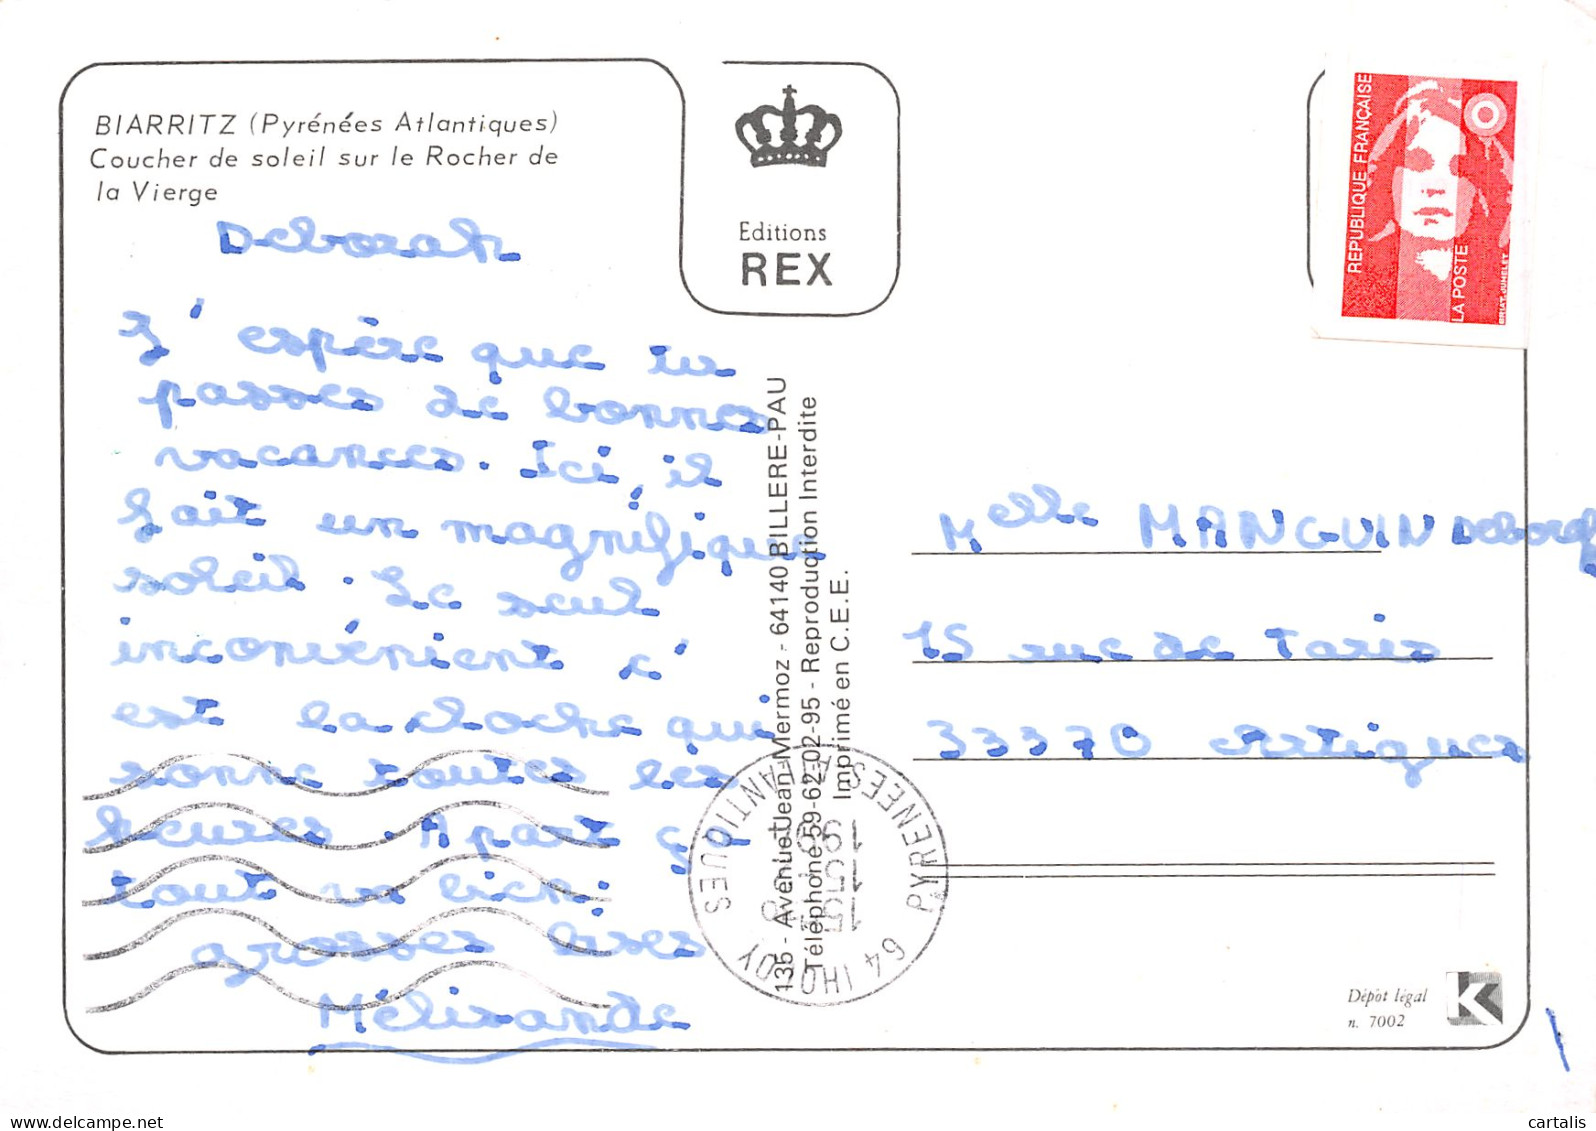 BIARRITZ (Pyrénées Atlantiques)
Coucher de soleil sur le Rocher de
la Vierge
Deborah
J'espère que tu
passes de bonnes
vacances. Ici, il
fait un magnifique
soleil. Le seul
inconvénient c'
est la cloche qui
sonne toutes les
heures. A part ça
tout va bien.
grosses bises
Mélisande
Editions
REX
135 - Avenue Jean Mermoz - 64140 BILLERE-PAU
Téléphone 59-62-02-95 - Reproduction Interdite
Imprimé en C.E.E.
REPUBLIQUE FRANÇAISE
LA POSTE
BRIAT-JUMELET
Melle MANGUIN Deborah
15 rue de Paris
33370 Artigues
64 IHOLDY
PYRENEES ATLANTIQUES
Dépôt légal
n. 7002
K
cartalis